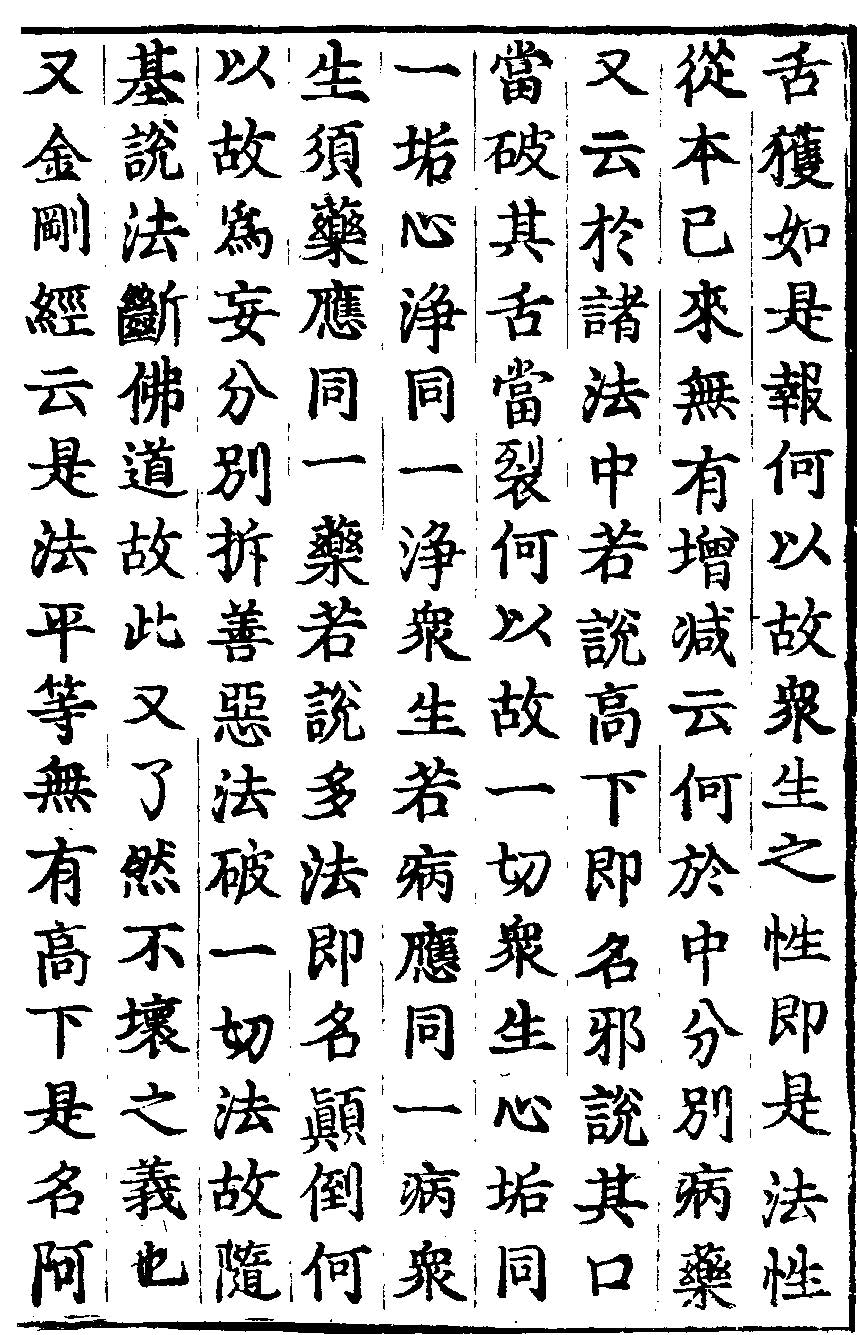 舌獲如是報何以故衆生之性即是法性
從本已來無有增減云何於中分別病藥
又云於諸法中若說高下即名邪說其口
當破其舌當裂何以故一切衆生心垢同
一垢心淨同一淨衆生若病應同一病衆
生須藥應同一藥若說多法即名顚倒何
以故爲妄分別拆善惡法破一切法故隨
基說法斷佛道故此又了然不壞之義也
又金剛經云是法平等無有高下是名阿